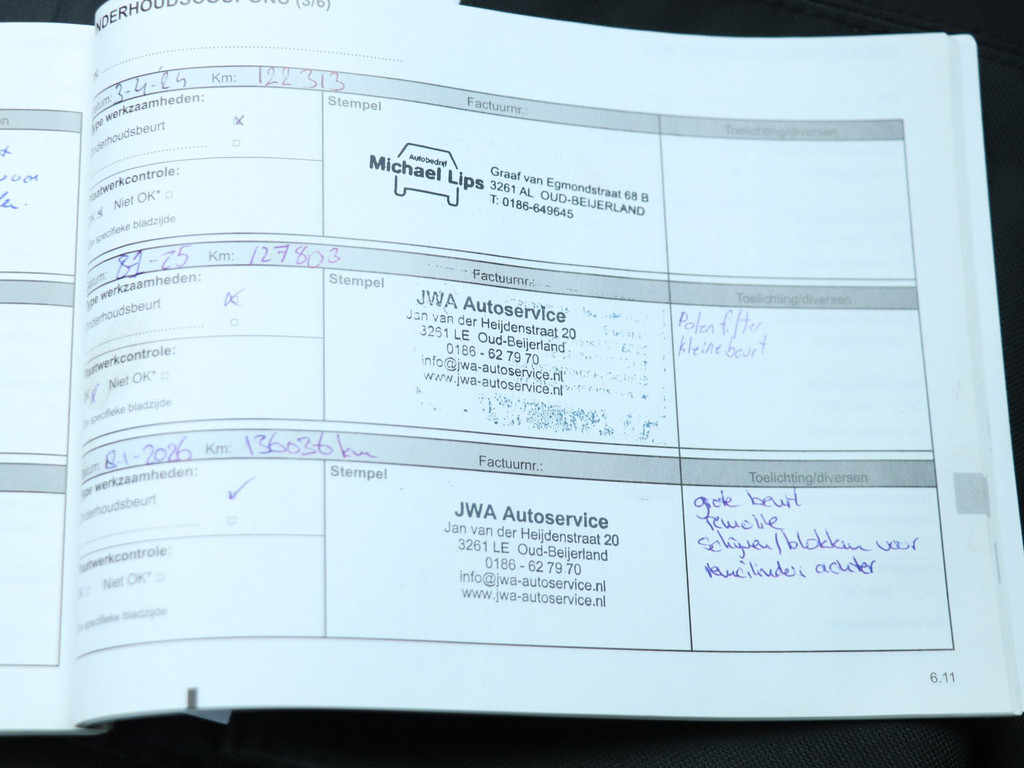 NDERHOUDSCOUPONS (3/6)
atum: 3-4-24 Km: 122313 Factuurnr.:
ype werkzaamheden:
nderhoudsbeurt
Stempel
Toelichting/diversen
aatwerkcontrole:
Niet OK*
specifieke bladzijde
Autobedrijf
Michael Lips
Graaf van Egmondstraat 68 B
3261 AL OUD-BEIJERLAND
T: 0186-649645
Km: 127803 Factuurnr.:
ype werkzaamheden:
nderhoudsbeurt
Stempel
Toelichting/diversen
aatwerkcontrole:
Niet OK*
specifieke bladzijde
JWA Autoservice
Jan van der Heijdenstraat 20
3261 LE Oud-Beijerland
0186 - 62 79 70
info@jwa-autoservice.nl
www.jwa-autoservice.nl
Polenfilter
kleine beurt
8-1-2026 Km: 136036 km Factuurnr.:
pe werkzaamheden:
nderhoudsbeurt
Stempel
Toelichting/diversen
aatwerkcontrole:
Niet OK*
specifieke bladzijde
JWA Autoservice
Jan van der Heijdenstraat 20
3261 LE Oud-Beijerland
0186 - 62 79 70
info@jwa-autoservice.nl
www.jwa-autoservice.nl
grote beurt
remolie
schijven/blokken voor
remcilinders achter
6.11